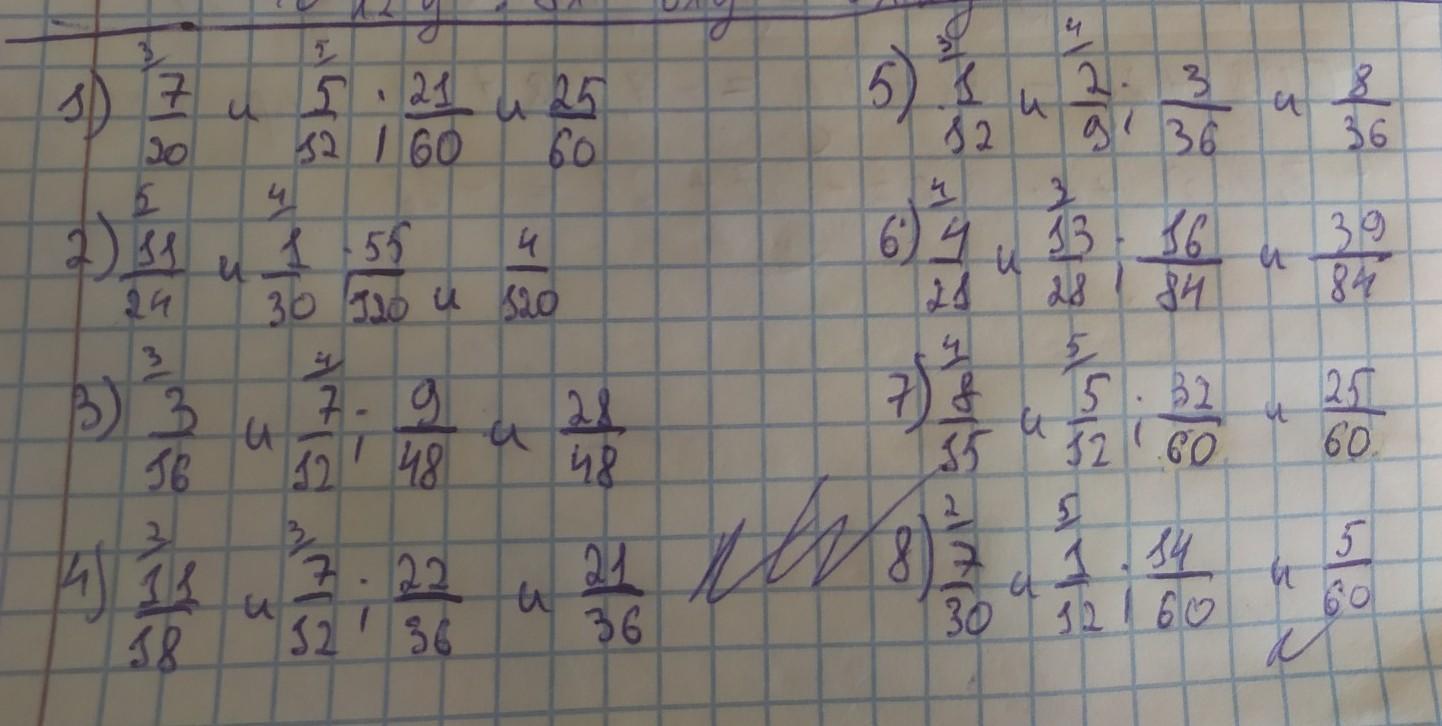 1) 3/ 7/20 и 5/ 5/12; 21/60 и 25/60
2) 5/ 11/24 и 4/ 1/30; 55/120 и 4/120
3) 3/ 3/16 и 4/ 7/12; 9/48 и 28/48
4) 2/ 11/18 и 3/ 7/12; 22/36 и 21/36
5) 3/ 1/12 и 4/ 2/9; 3/36 и 8/36
6) 4/ 4/21 и 3/ 13/28; 16/84 и 39/84
7) 4/ 8/15 и 5/ 5/12; 32/60 и 25/60
8) 2/ 7/30 и 5/ 1/12; 14/60 и 5/60